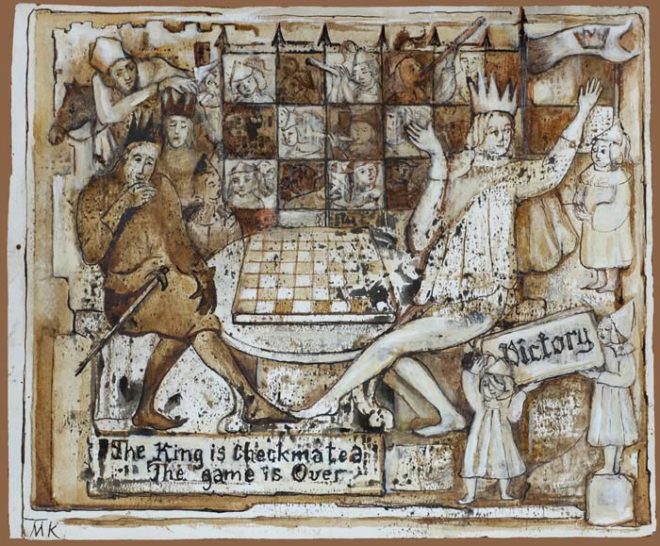 Victory
The King is Checkmated
The game is Over
MK